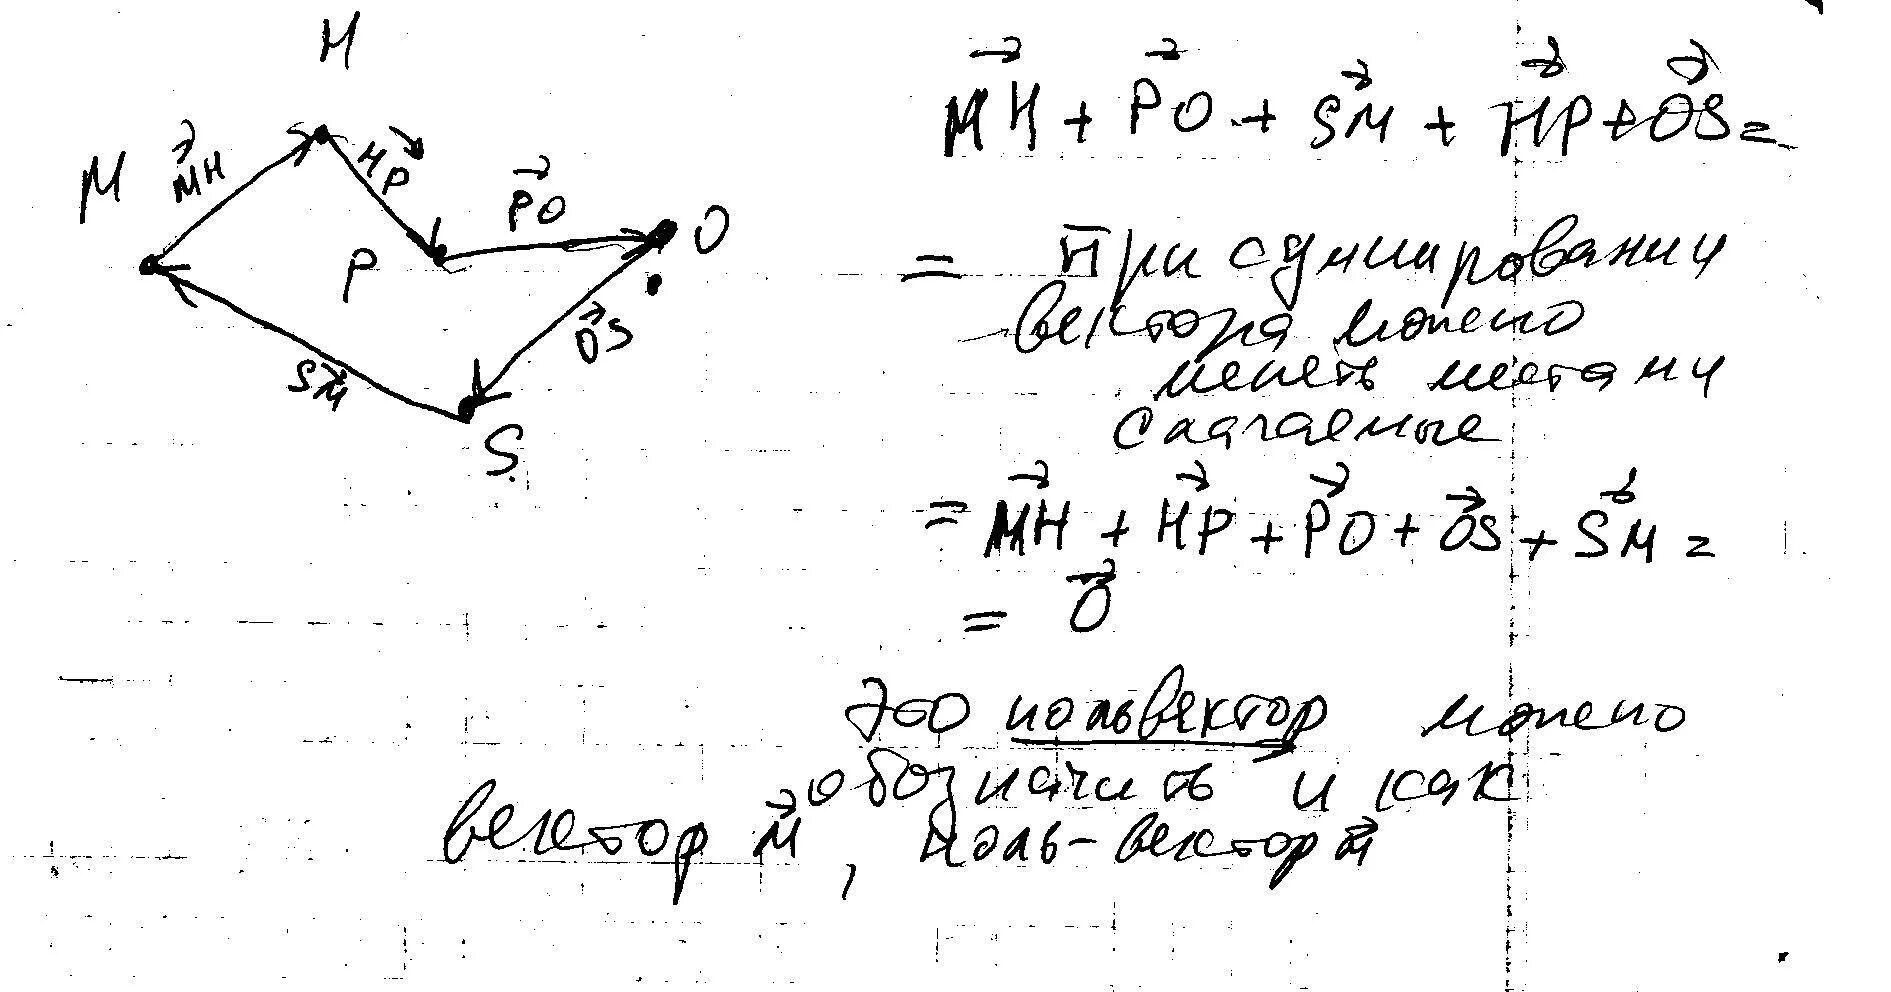 H
M
MH
HP
PO
O
P
OS
SM
S
MH + PO + SM + HP + OS =
= При сумировании
вектора можно
менять местами
слагаемые
= MH + HP + PO + OS + SM =
= 0
Это нольвектор можно
обозначить и как
вектор M, ноль-вектор M